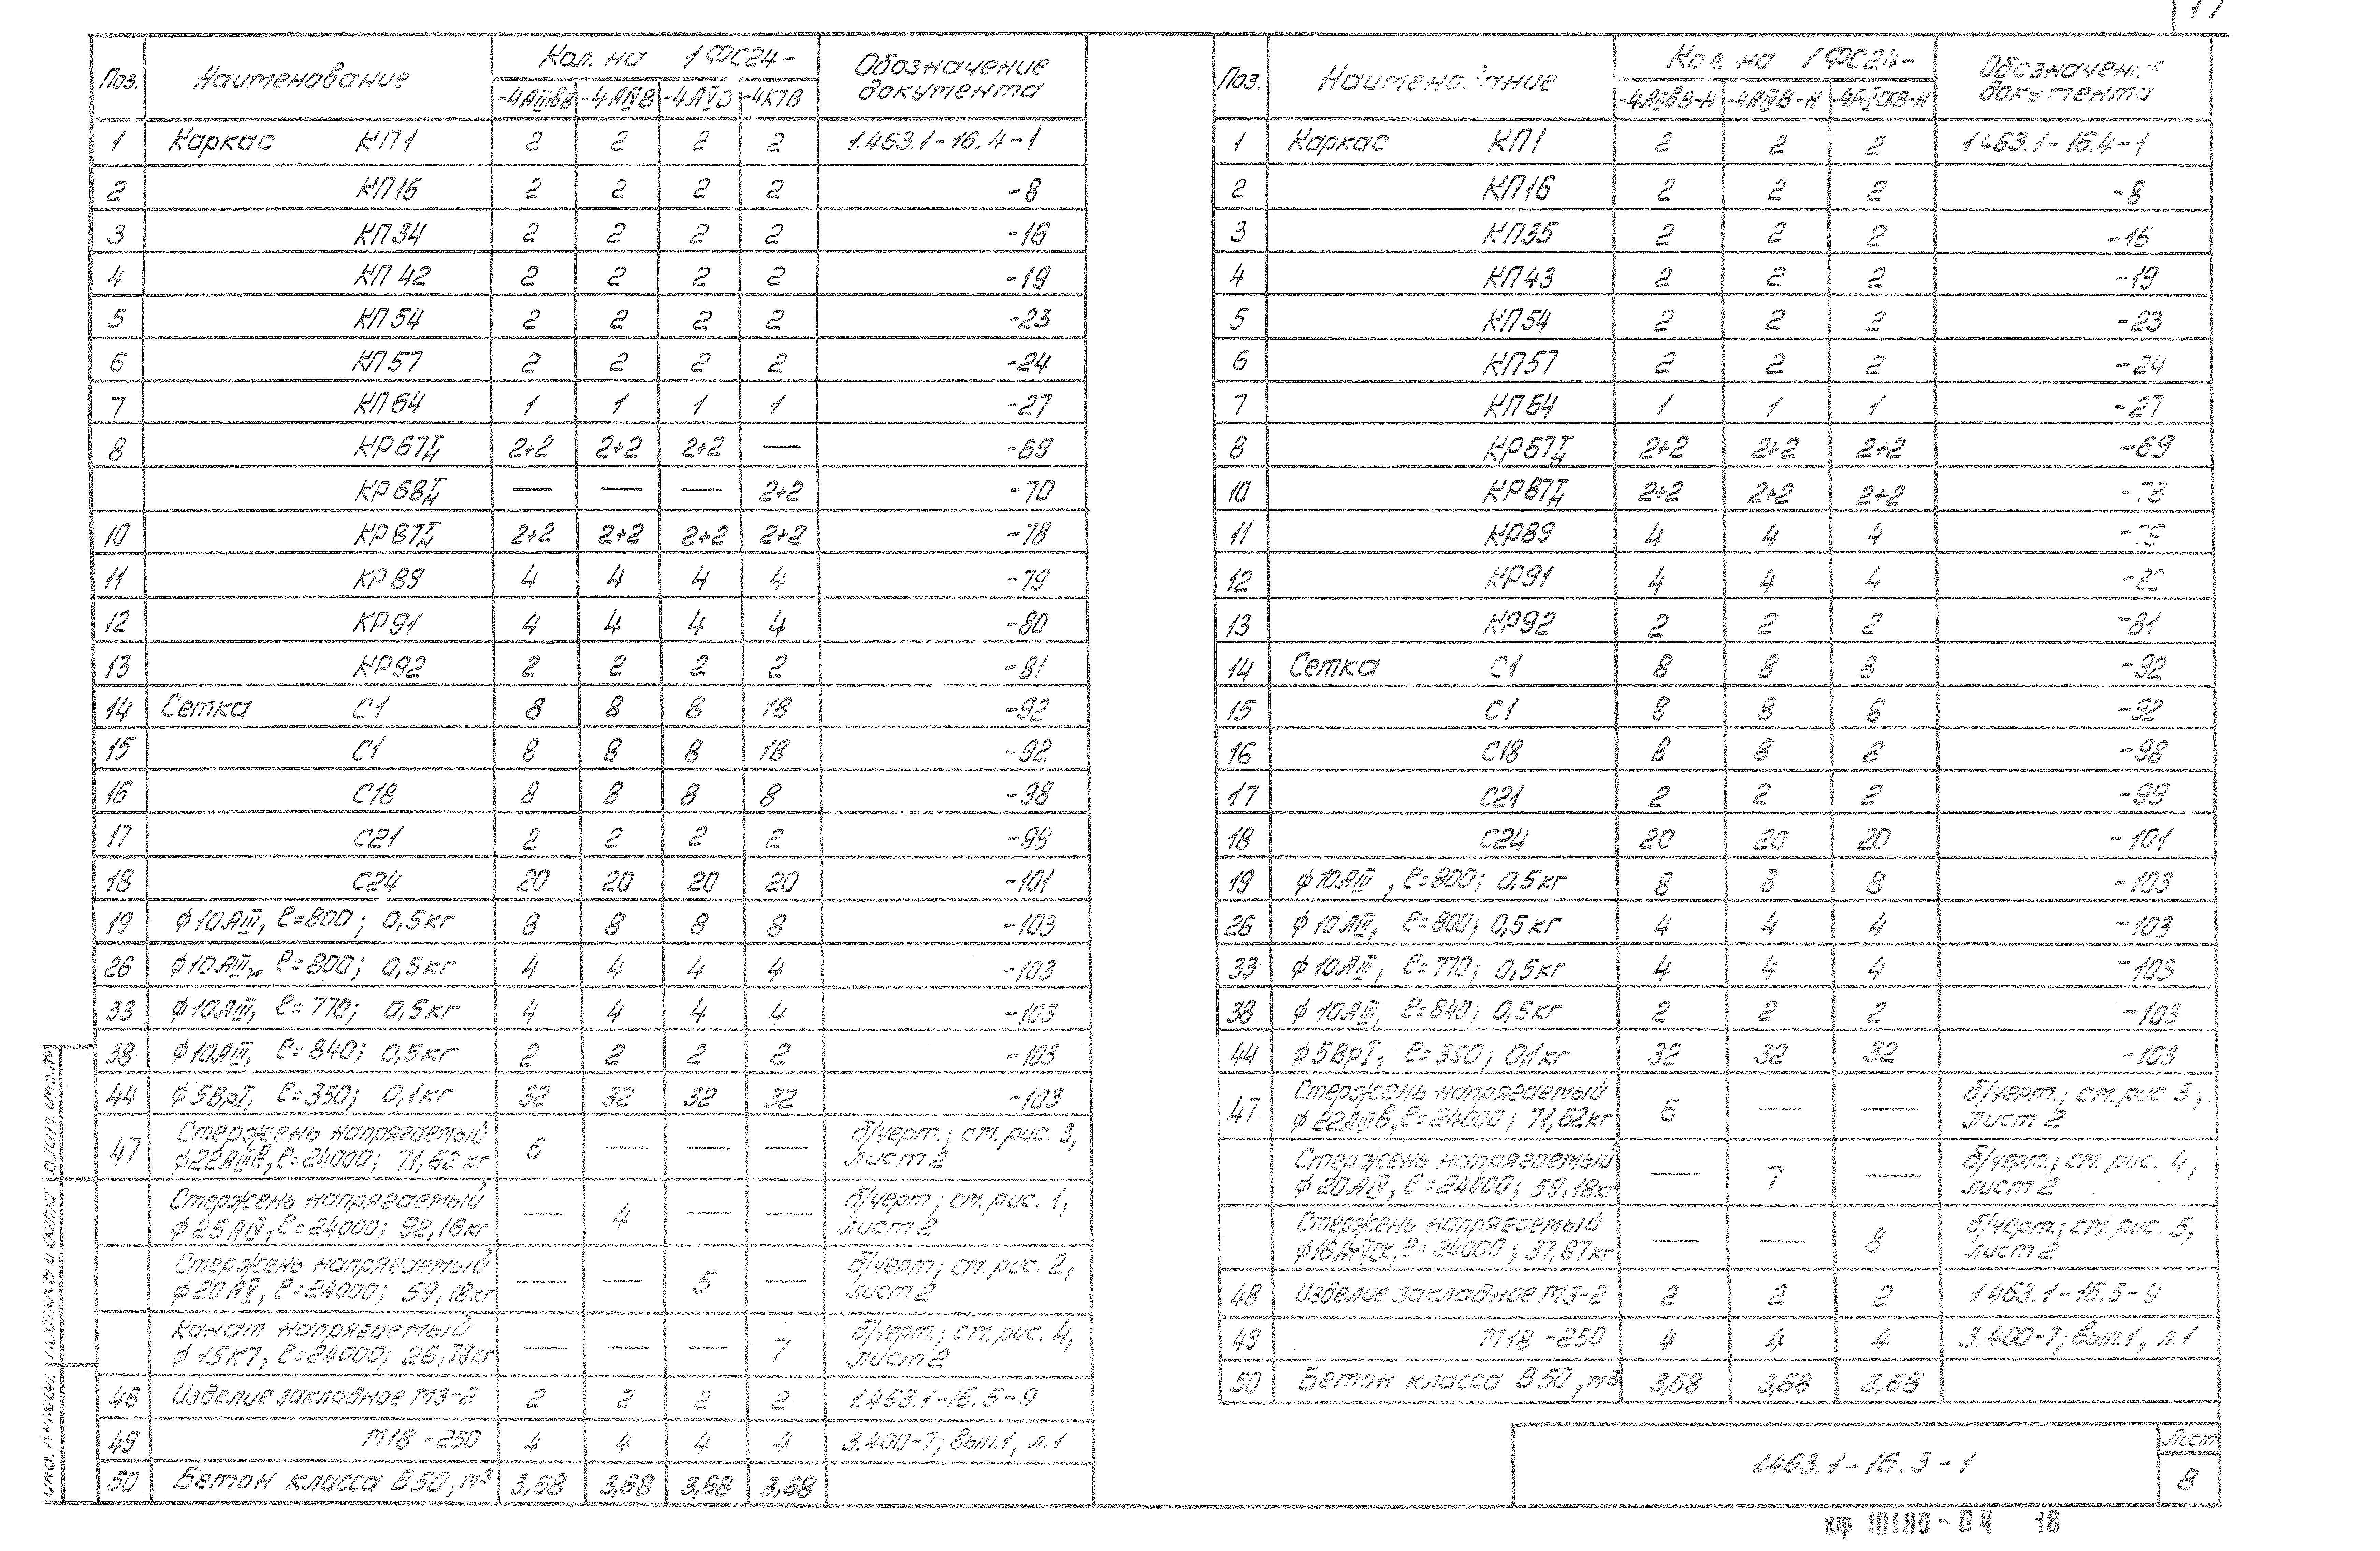 17
Поз. Наименование Кол. на 1ФС24- Обозначение документа
-4АIIIвВ -4АIVВ -4АV -4К7В
1 Каркас КП1 2 2 2 2 1.463.1-16.4-1
2 КП16 2 2 2 2 -8
3 КП34 2 2 2 2 -16
4 КП42 2 2 2 2 -19
5 КП54 2 2 2 2 -23
6 КП57 2 2 2 2 -24
7 КП64 1 1 1 1 -27
8 КР67Т/Н 2+2 2+2 2+2 — -69
КР68Т/Н — — — 2+2 -70
10 КР87Т/Н 2+2 2+2 2+2 2+2 -78
11 КР89 4 4 4 4 -79
12 КР91 4 4 4 4 -80
13 КР92 2 2 2 2 -81
14 Сетка С1 8 8 8 18 -92
15 С1 8 8 8 18 -92
16 С18 8 8 8 8 -98
17 С21 2 2 2 2 -99
18 С24 20 20 20 20 -101
19 ф10АIII, ℓ=800; 0,5кг 8 8 8 8 -103
26 ф10АIII, ℓ=800; 0,5кг 4 4 4 4 -103
33 ф10АIII, ℓ=770; 0,5кг 4 4 4 4 -103
38 ф10АIII, ℓ=840; 0,5кг 2 2 2 2 -103
44 ф5ВрI, ℓ=350; 0,1кг 32 32 32 32 -103
47 Стержень напрягаемый 6 — — — б/черт.; см. рис. 3,
ф22АIIIв, ℓ=24000; 71,62кг лист 2
Стержень напрягаемый — 4 — — б/черт; см. рис. 1,
ф25АIV, ℓ=24000; 92,16кг лист 2
Стержень напрягаемый — — 5 — б/черт; см. рис. 2,
ф20АV, ℓ=24000; 59,18кг лист 2
Канат напрягаемый — — — 7 б/черт.; см. рис. 4,
ф15К7, ℓ=24000; 26,78кг лист 2
48 Изделие закладное М3-2 2 2 2 2 1.463.1-16.5-9
49 М18-250 4 4 4 4 3.400-7; вып.1, л.1
50 Бетон класса В50, м³ 3,68 3,68 3,68 3,68
Поз. Наименование Кол. на 1ФС24- Обозначение документа
-4АIIIвВ-Н -4АIVВ-Н -4АтVСКВ-Н
1 Каркас КП1 2 2 2 1.463.1-16.4-1
2 КП16 2 2 2 -8
3 КП35 2 2 2 -16
4 КП43 2 2 2 -19
5 КП54 2 2 2 -23
6 КП57 2 2 2 -24
7 КП64 1 1 1 -27
8 КР67Т/Н 2+2 2+2 2+2 -69
10 КР87Т/Н 2+2 2+2 2+2 -78
11 КР89 4 4 4 -79
12 КР91 4 4 4 -80
13 КР92 2 2 2 -81
14 Сетка С1 8 8 8 -92
15 С1 8 8 8 -92
16 С18 8 8 8 -98
17 С21 2 2 2 -99
18 С24 20 20 20 -101
19 ф10АIII, ℓ=800; 0,5кг 8 8 8 -103
26 ф10АIII, ℓ=800; 0,5кг 4 4 4 -103
33 ф10АIII, ℓ=770; 0,5кг 4 4 4 -103
38 ф10АIII, ℓ=840; 0,5кг 2 2 2 -103
44 ф5ВрI, ℓ=350; 0,1кг 32 32 32 -103
47 Стержень напрягаемый 6 — — б/черт.; см. рис. 3,
ф22АIIIв, ℓ=24000; 71,62кг лист 2
Стержень напрягаемый — 7 — б/черт.; см. рис. 4,
ф20АIV, ℓ=24000; 59,18кг лист 2
Стержень напрягаемый — — 8 б/черт.; см. рис. 5,
ф16АтVСК, ℓ=24000; 37,87кг лист 2
48 Изделие закладное М3-2 2 2 2 1.463.1-16.5-9
49 М18-250 4 4 4 3.400-7; вып.1, л.1
50 Бетон класса В50, м³ 3,68 3,68 3,68
1.463.1-16.3-1
Лист
8
кф 10180-04 18